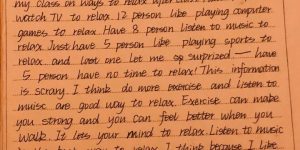 my class on ways to relax after class
watch TV to relax. 12 person like playing computer
games to relax. Have 8 person listen to music to
relax. Just have 5 person like playing sports to
relax. and last one let me so surprized — have
5 person have no time to relax! This information
is scrary. I think do more exercise and listen to
muisc are good way to relax. Exercise can make
you strong and you can feel better when you
walk. It lets your mind to relax. Listen to music
relax. I think because I like